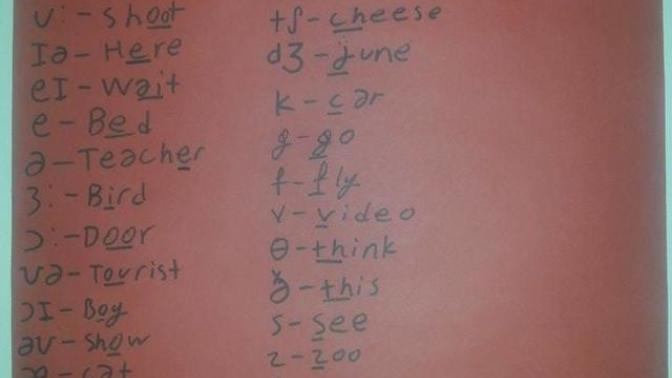 ʊː - shoot
Iə - Here
eI - Wait
e - Bed
ə - Teacher
ɜː - Bird
ɔː - Door
ʊə - Tourist
ɔI - Boy
əʊ - show
æ - cat
tʃ - cheese
dʒ - june
k - car
g - go
f - fly
v - video
θ - think
ð - this
s - see
z - zoo